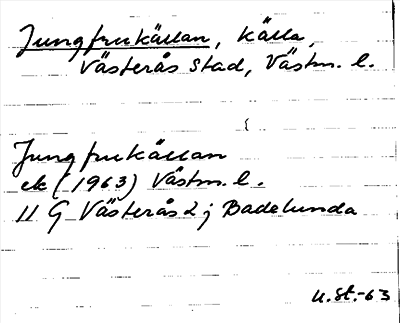 Jungfrukällan, källa,
Västerås stad, Västm. l.
Jungfrukällan
ek (1963) Västm. l.
11 G Västerås 2 j Badelunda
U.St.-63